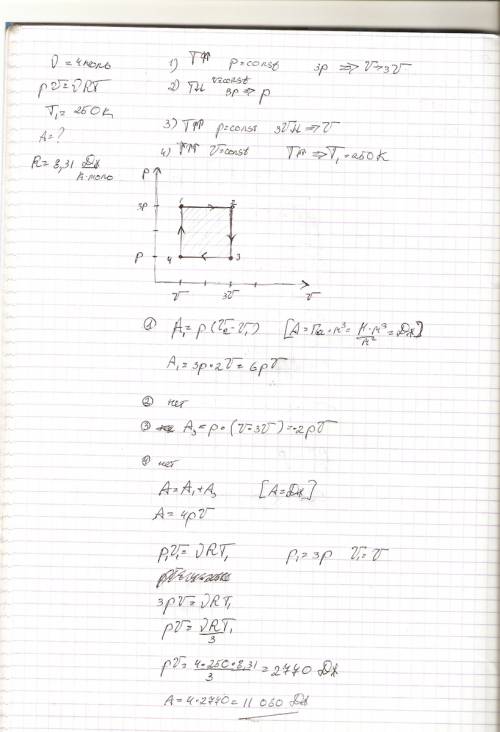 ν = 4 моль
pV = νRT
T₁ = 250 К
A = ?
R = 8,31 Дж / К·моль
1) T↑↑ p = const 3p ⇒ V → 3V
2) T↓↓ V = const 3p ⇒ p
3) p = const 3V ⇒ V
4) T↑↑ V = const ⇒ T₁ = 250 К
p
3p
1 2
p
4 3
V 3V V
① A₁ = p(V₂ - V₁) [A = Па · м³ = Н · м³ / м² = Дж]
A₁ = 3p · 2V = 6pV
② нет
③ A₃ = p · (V - 3V) = -2pV
④ нет
A = A₁ + A₃ [A = Дж]
A = 4pV
p₁V₁ = νRT₁ p₁ = 3p V₁ = V
3pV = νRT₁
pV = νRT₁ / 3
pV = 4·250·8,31 / 3 = 2770 Дж
A = 4·2770 = 11 080 Дж